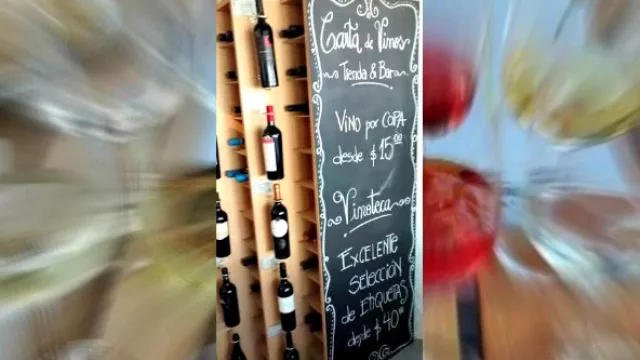 Carta de Vinos
Tienda & Bar
VINO por COPA
desde $15.00
Vinoteca
EXCELENTE
SELECCIÓN
de ETIQUETAS
desde $40.00